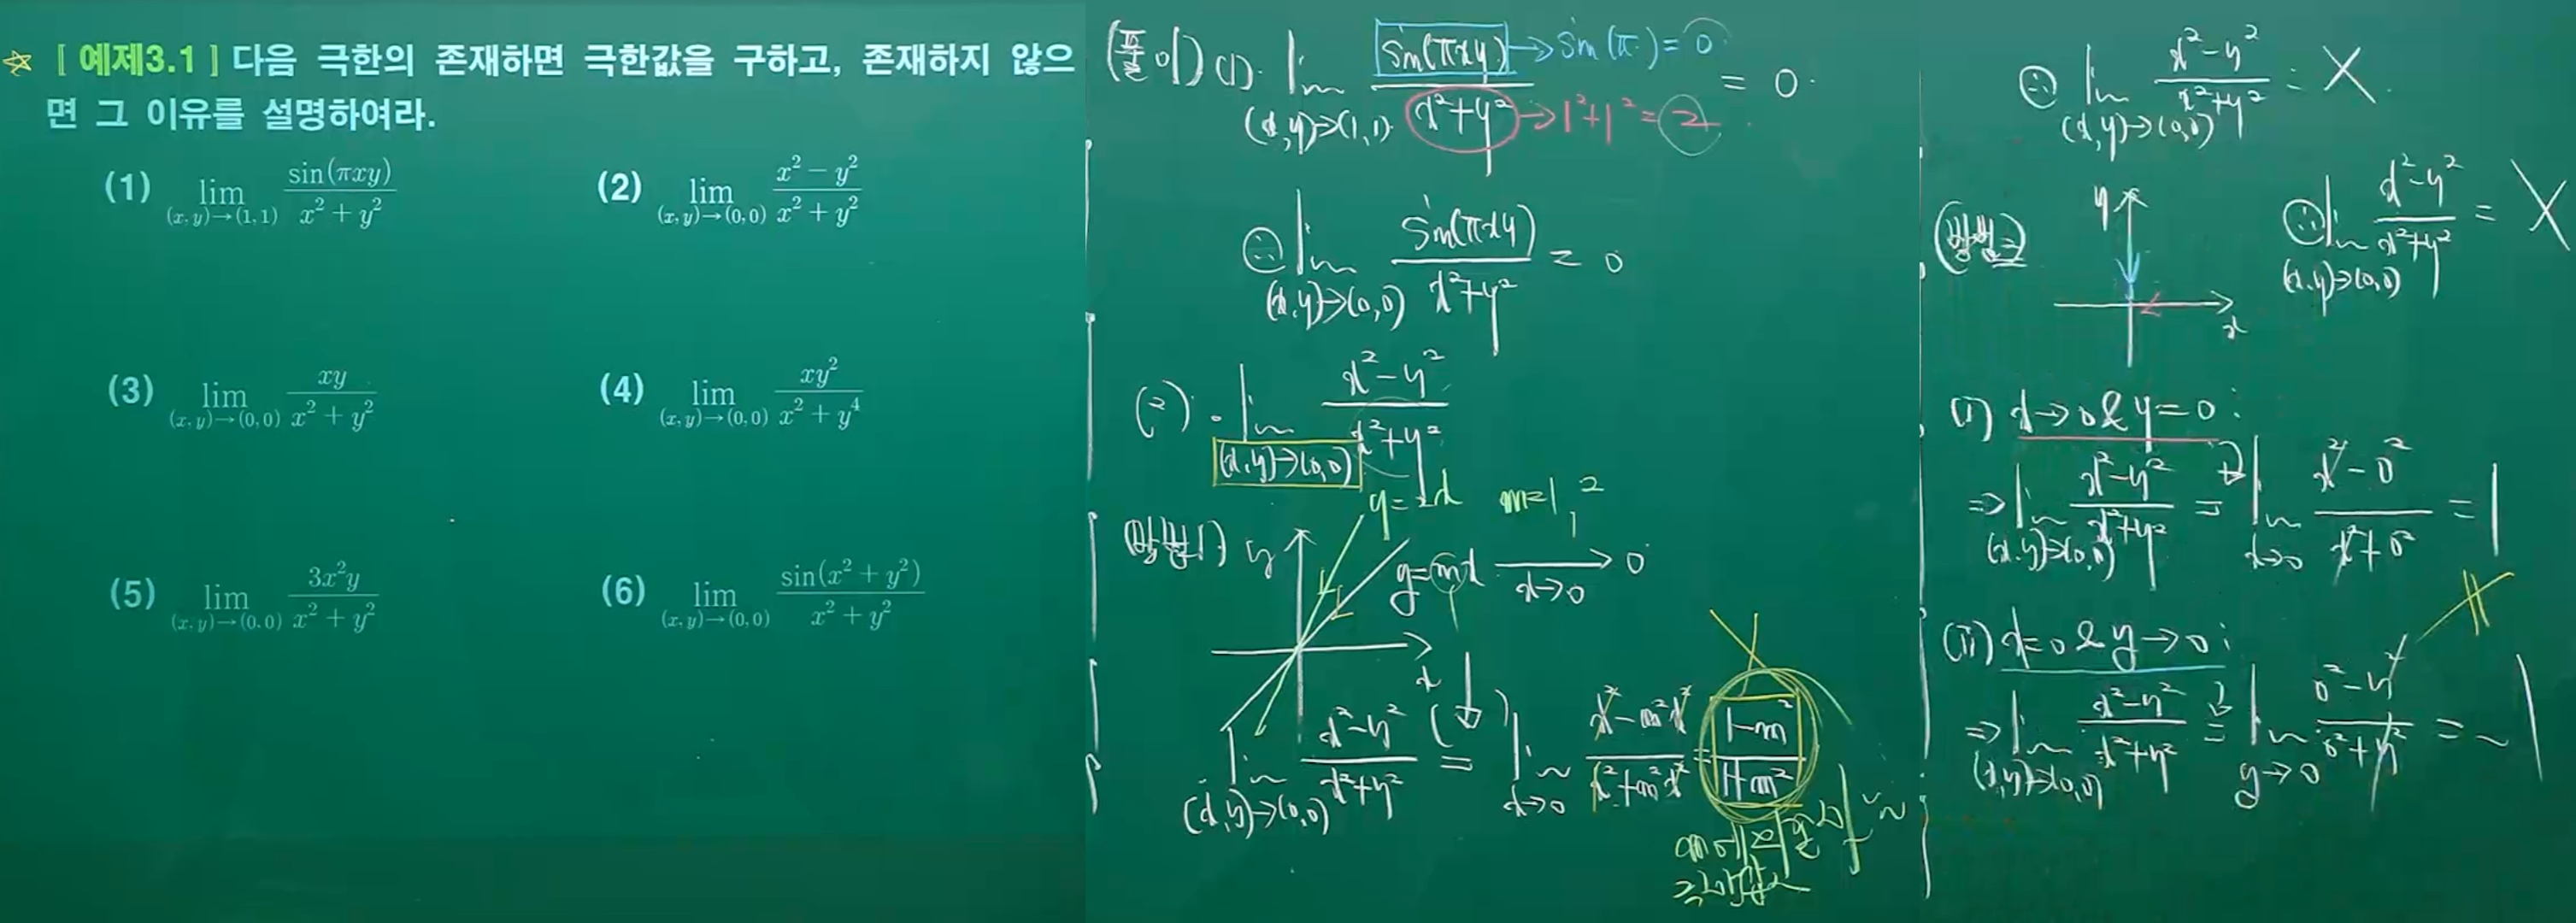 [ 예제3.1 ] 다음 극한의 존재하면 극한값을 구하고, 존재하지 않으
면 그 이유를 설명하여라.
(1) lim (x,y)→(1,1) sin(πxy) / x² + y²
(2) lim (x,y)→(0,0) x² − y² / x² + y²
(3) lim (x,y)→(0,0) xy / x² + y²
(4) lim (x,y)→(0,0) xy² / x² + y⁴
(5) lim (x,y)→(0.0) 3x²y / x² + y²
(6) lim (x,y)→(0,0) sin(x² + y²) / x² + y²
(풀이) (1). lim (x,y)→(1,1) sin(πxy) / x²+y² = 0
→ sin(π) = 0
→ 1²+1² = 2
∴ lim (x,y)→(0,0) sin(πxy) / x²+y² = 0
(2). lim (x,y)→(0,0) x²−y² / x²+y²
y=2x m=1, 2
(방법1) y
y=mx → 0
x→0
x
lim (x,y)→(0,0) x²−y² / x²+y² = lim x→0 x²−m²x² / x²+m²x² = 1−m² / 1+m²
∴ lim (x,y)→(0,0) x²−y² / x²+y² = X
(방법2) y x
∴ lim (x,y)→(0,0) x²−y² / x²+y² = X
(i) x→0 & y=0 :
⇒ lim (x,y)→(0,0) x²−y² / x²+y² = lim x→0 x²−0² / x²+0² = 1
(ii) x=0 & y→0 :
⇒ lim (x,y)→(0,0) x²−y² / x²+y² = lim y→0 0²−y² / 0²+y² = −1